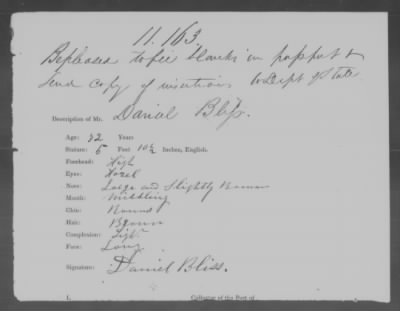 11.163.
Be pleased to fill blanks in passport &
send copy of insertions to Dept of State.
Description of Mr. Daniel Bliss.
Age: 32 Years
Stature: 5 Feet 10½ Inches, English.
Forehead: High
Eyes: Hazel
Nose: Large and Slightly Roman
Mouth: Middling
Chin: Round
Hair: Brown
Complexion: Light
Face: Long
Signature: Daniel Bliss.
I, Collector of the Port of